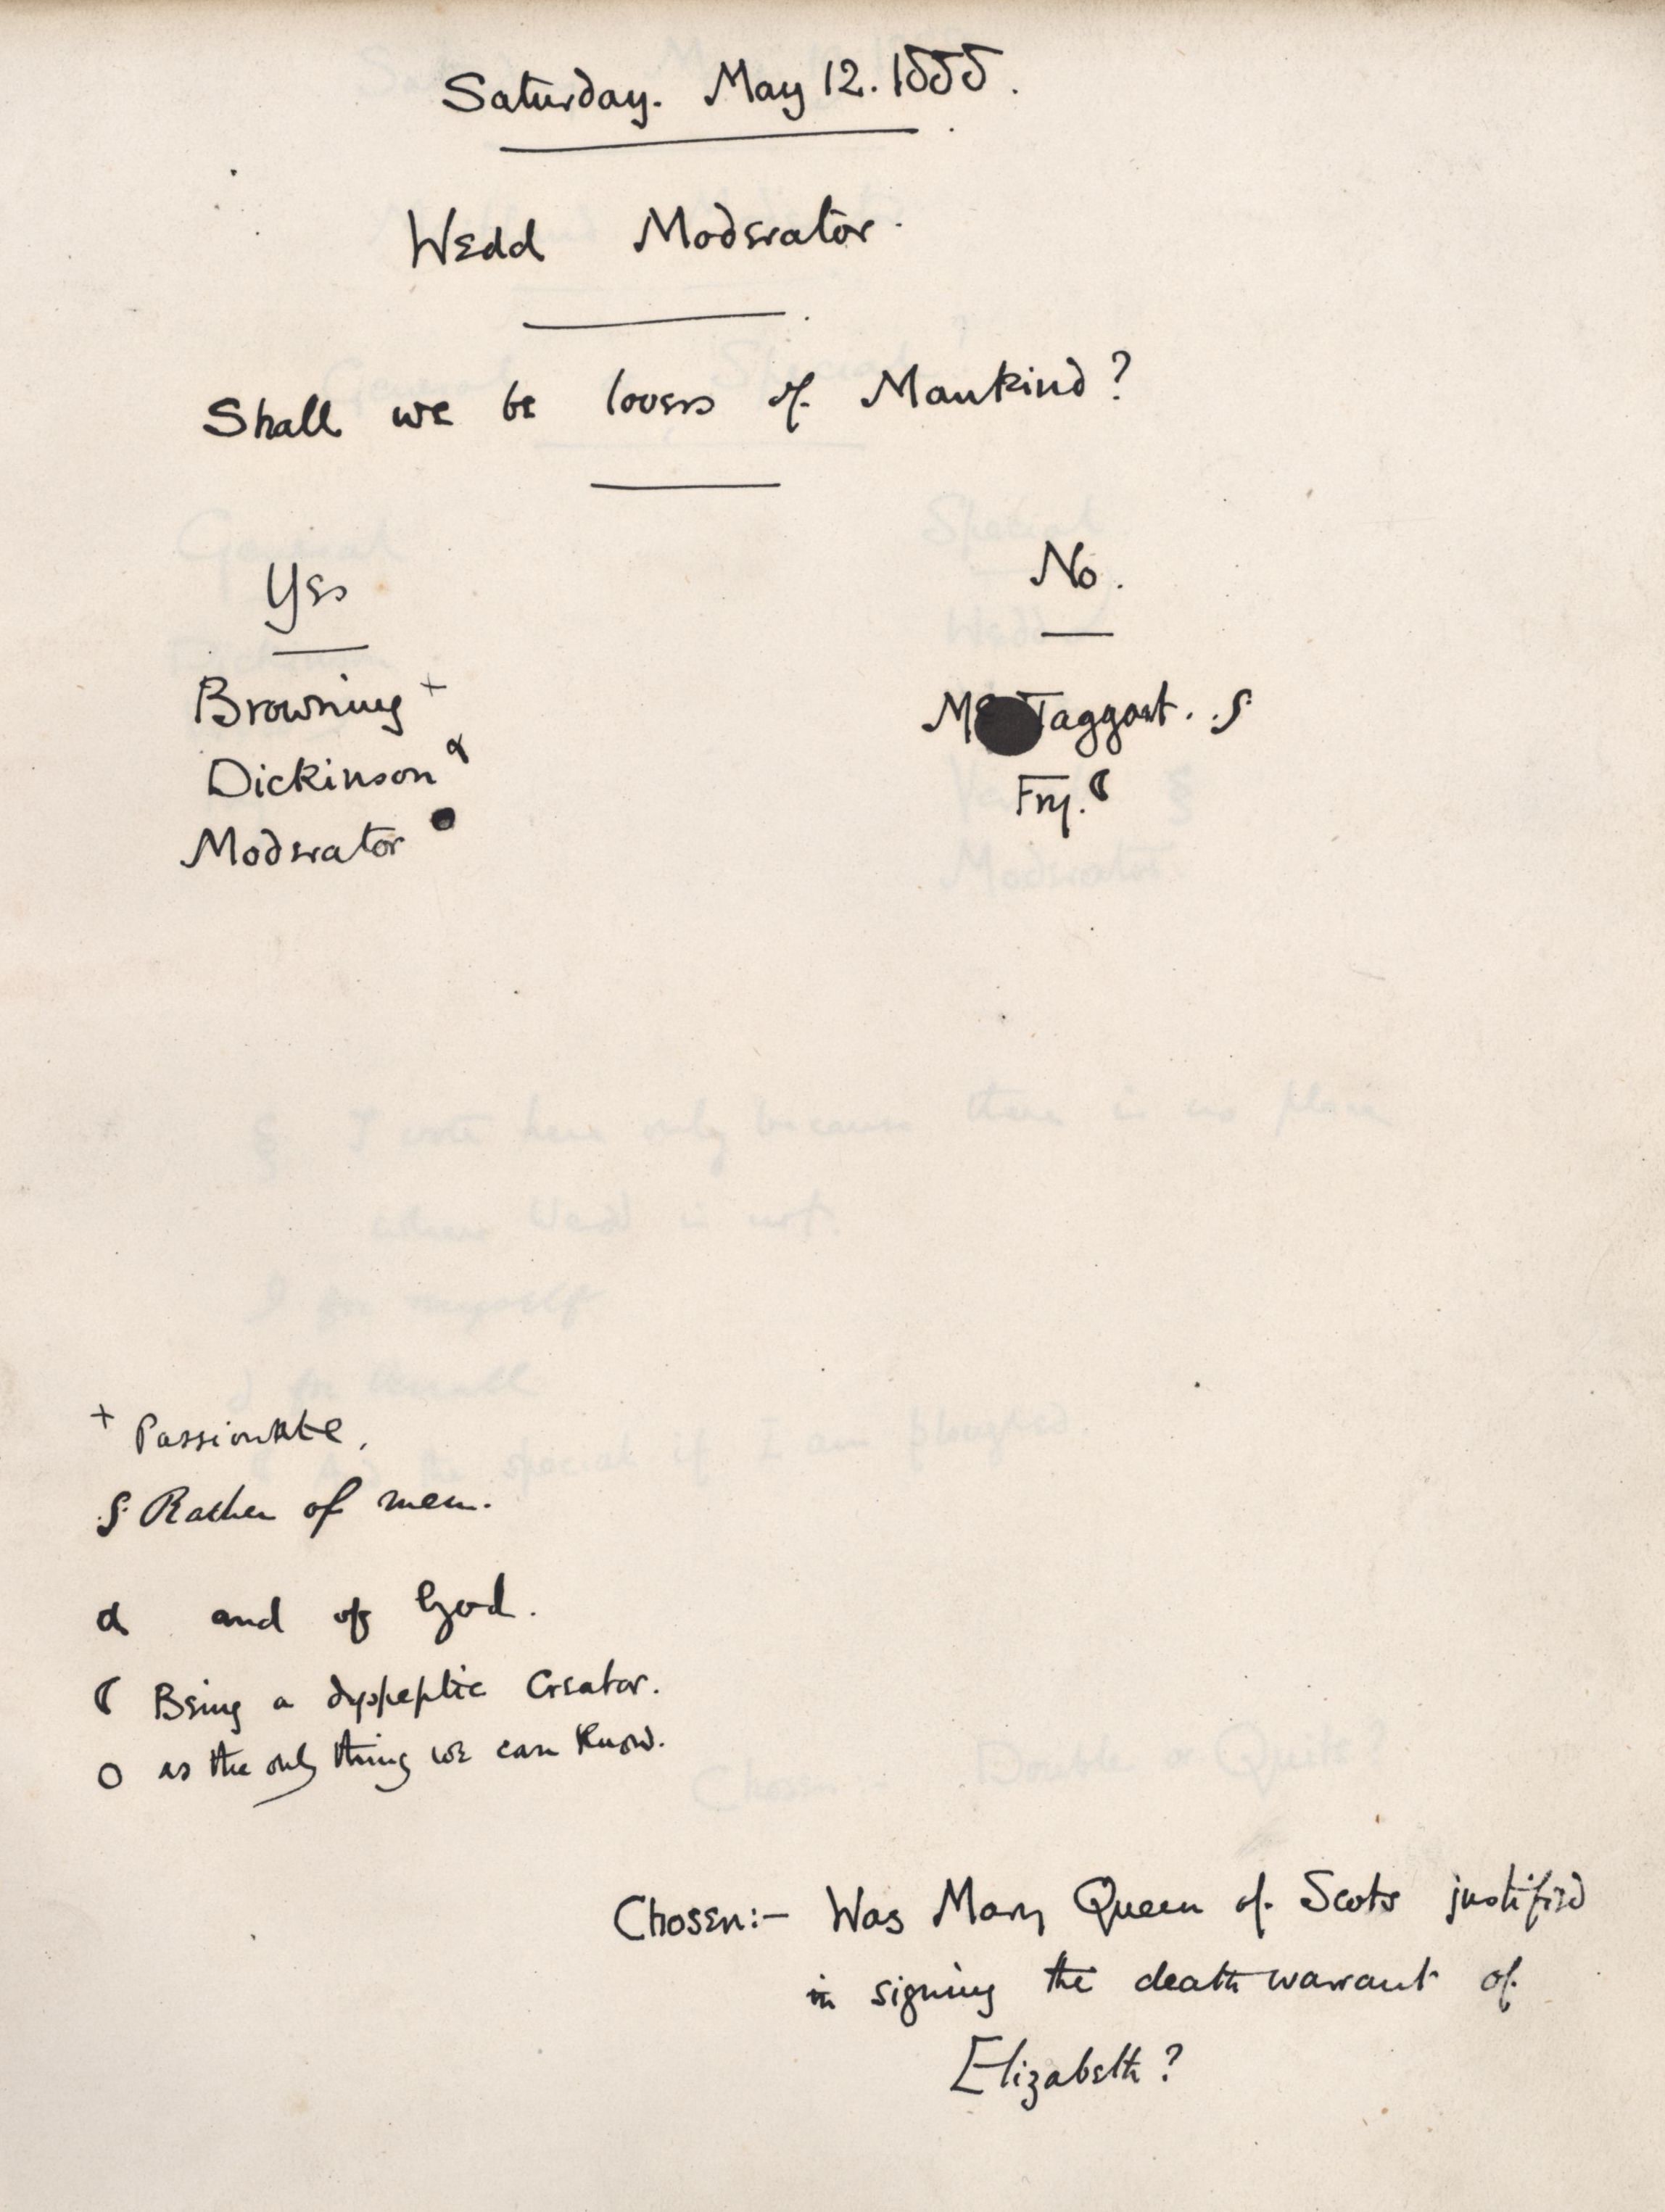 Saturday. May 12. 1888.
Wedd Moderator.
Shall we be lovers of Mankind?
Yes
No.
Browning +
McTaggart. §
Dickinson α
Fry.
Moderator
+ Passionate.
§ Rather of men.
α and of God.
Being a dyspeptic Creator.
O as the only thing we can know.
Chosen:- Was Mary Queen of Scots justified
in signing the death warrant of
Elizabeth?